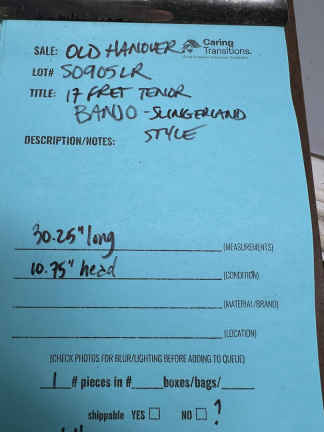 SALE: OLD HANOVER Caring Transitions.
LOT# SO905LR
TITLE: 17 FRET TENOR
BANJO - SLINGERLAND
STYLE
DESCRIPTION/NOTES:
30.25" long (MEASUREMENTS)
10.75" head (CONDITION)
(MATERIAL/BRAND)
(LOCATION)
(CHECK PHOTOS FOR BLUR/LIGHTING BEFORE ADDING TO QUEUE)
1 # pieces in # boxes/bags/
shippable YES NO ?